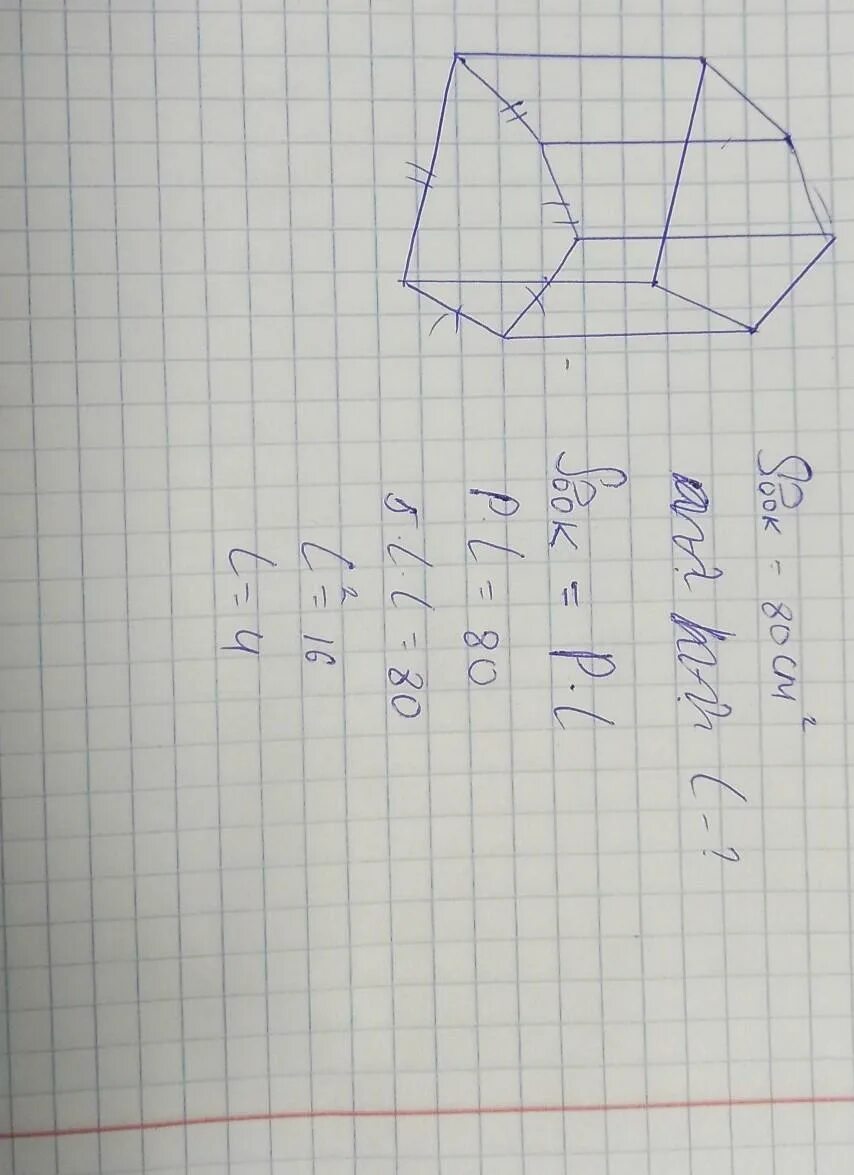 Sбок = 80 см²
L - ?
Sбок = P · L
P · L = 80
5 · L · L = 80
L² = 16
L = 4